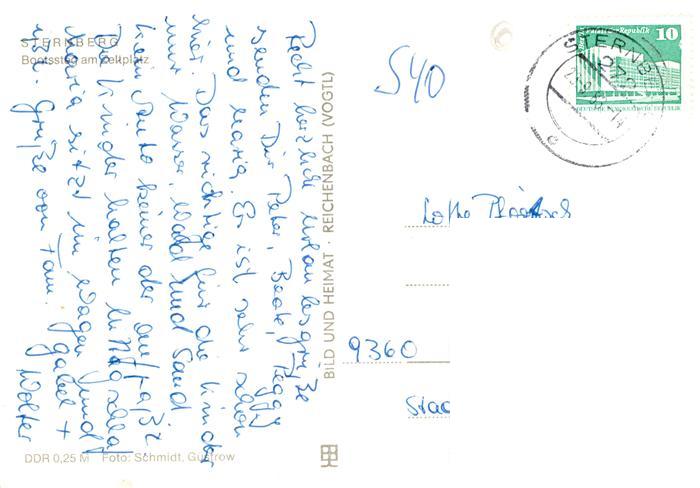 STERNBERG
Bootssteg am Zeltplatz
Recht herzliche Urlaubsgrüße
senden Dir Peter, Beate, Peggy
und Maria. Es ist sehr schön
hier. Das richtige für die Kinder
nur Wasser, Wald und Sand
kein Auto keiner der aufpaßt
Die Kinder halten
Maria sitzt im Wagen und
ißt. Grüße von Fam.
Wolter
BILD UND HEIMAT · REICHENBACH (VOGTL)
DDR 0,25 M Foto: Schmidt, Güstrow
540
10
DEUTSCHE DEMOKRATISCHE REPUBLIK
STERNB
272
9360